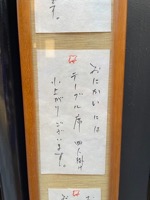 ます。
おにかいには
テーブル席 四人掛け
小上がりございます。